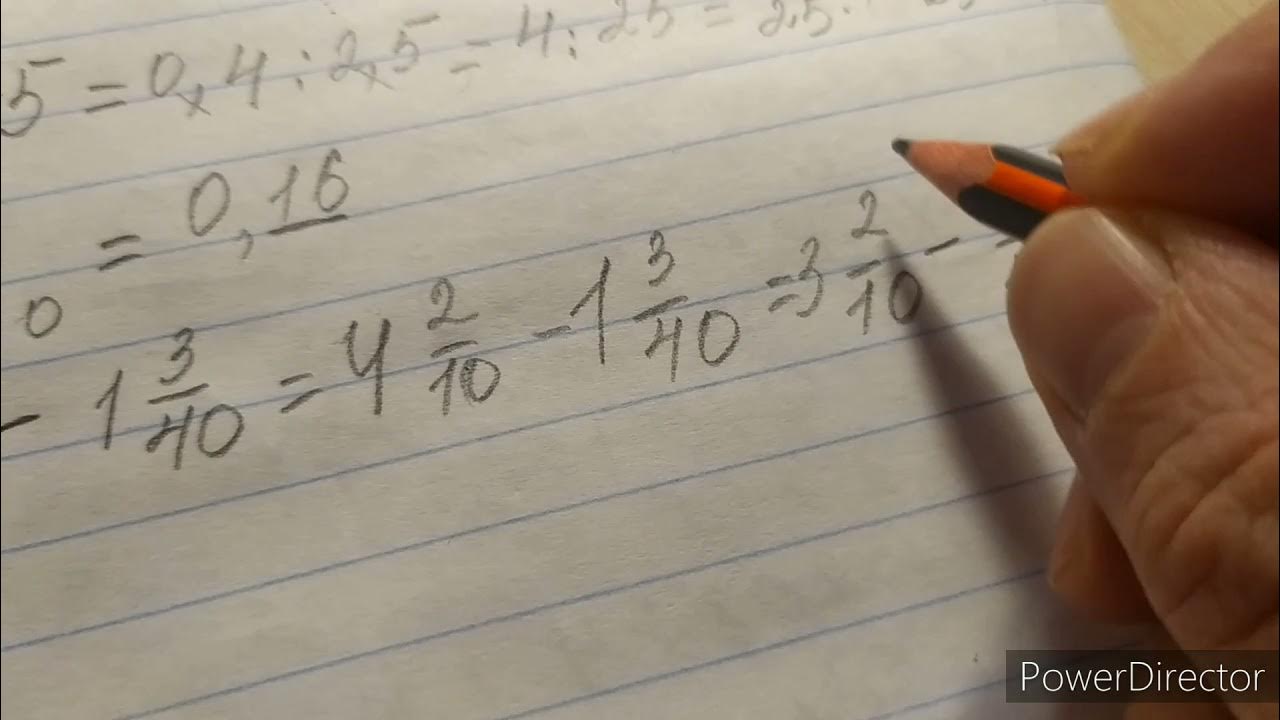 5 = 0,4 : 2,5 = 4 : 25 =
= 0,16
0
- 1 3/40 = 4 2/10 - 1 3/40 = 3 2/10 -
PowerDirector